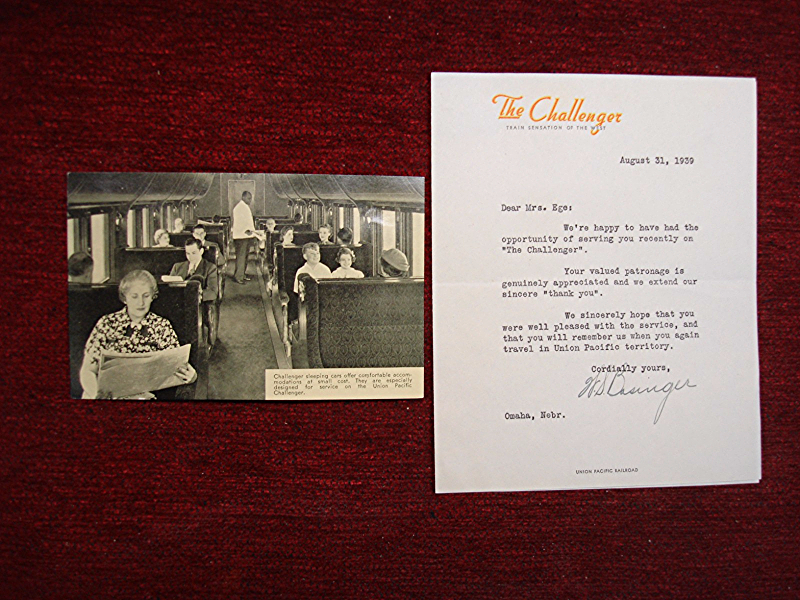 Challenger sleeping cars offer comfortable accom-
modations at small cost. They are especially
designed for service on the Union Pacific
Challenger.
The Challenger
TRAIN SENSATION OF THE WEST
August 31, 1939
Dear Mrs. Ege:
We're happy to have had the
opportunity of serving you recently on
"The Challenger".
Your valued patronage is
genuinely appreciated and we extend our
sincere "thank you".
We sincerely hope that you
were well pleased with the service, and
that you will remember us when you again
travel in Union Pacific territory.
Cordially yours,
W.S. Basinger
Omaha, Nebr.
UNION PACIFIC RAILROAD